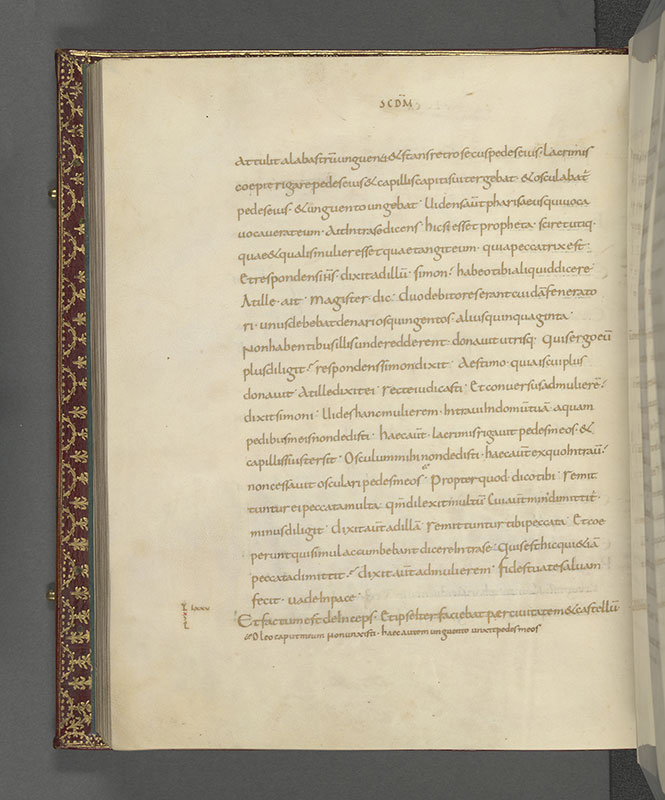 SCDM̄
attulit alabastrū unguenti & stans retro secus pedes eius· Lacrimis
coepit rigare pedes eius & capillis capitis sui tergebat· & osculabat̄
pedes eius· & unguento ungebat· Uidens aūt pharisaeus qui uoca
uocauerat eum· Ait Intra se dicens· hic si esset propheta· sciret utiq·
quae & qualis mulier esset quae tangit eum· quia peccatrix est·
Et respondens iħs· dixit ad illū· simon· habeo tibi aliquid dicere·
At ille· ait· magister· dic· duo debitores erant cuidā fenerato
ri· unus debebat denarios quingentos· alius quinquaginta·
Non habentibus illis unde redderent· donauit utrisq· Quis ergo eū
plus diligit· respondens simon dixit· Aestimo· quia is cui plus
donauit· At ille dixit ei· recte iudicasti· Et conuersus ad mulierē·
dixit simoni· Uides hanc mulierem· Intraui In domū tuā· aquam
pedibus meis non dedisti· haec aūt· lacrimis rigauit pedes meos· &
capillis suis tersit· Osculum mihi non dedisti· haec aūt ex quo Intraui·
non cessauit osculari pedes meos· Propter quod· dico tibi· remit
tuntur ei peccata multa· qm̄ dilexit multū· Cui aūt min' dimittit̄·
minus diligit· dixit aūt ad illā· remittuntur tibi peccata· Et coe
perunt qui simul accumbebant dicere Intra se· Quis est hic qui & iā
peccata dimittit· dixit aūt ad mulierem· fides tua te saluam
fecit· uade In pace·
lxxv
Et factum est deInceps· Et ipse Iter faciebat per ciuitatem & castellū
Oleo caput meum non unxisti· haec autem unguento unxit pedes meos